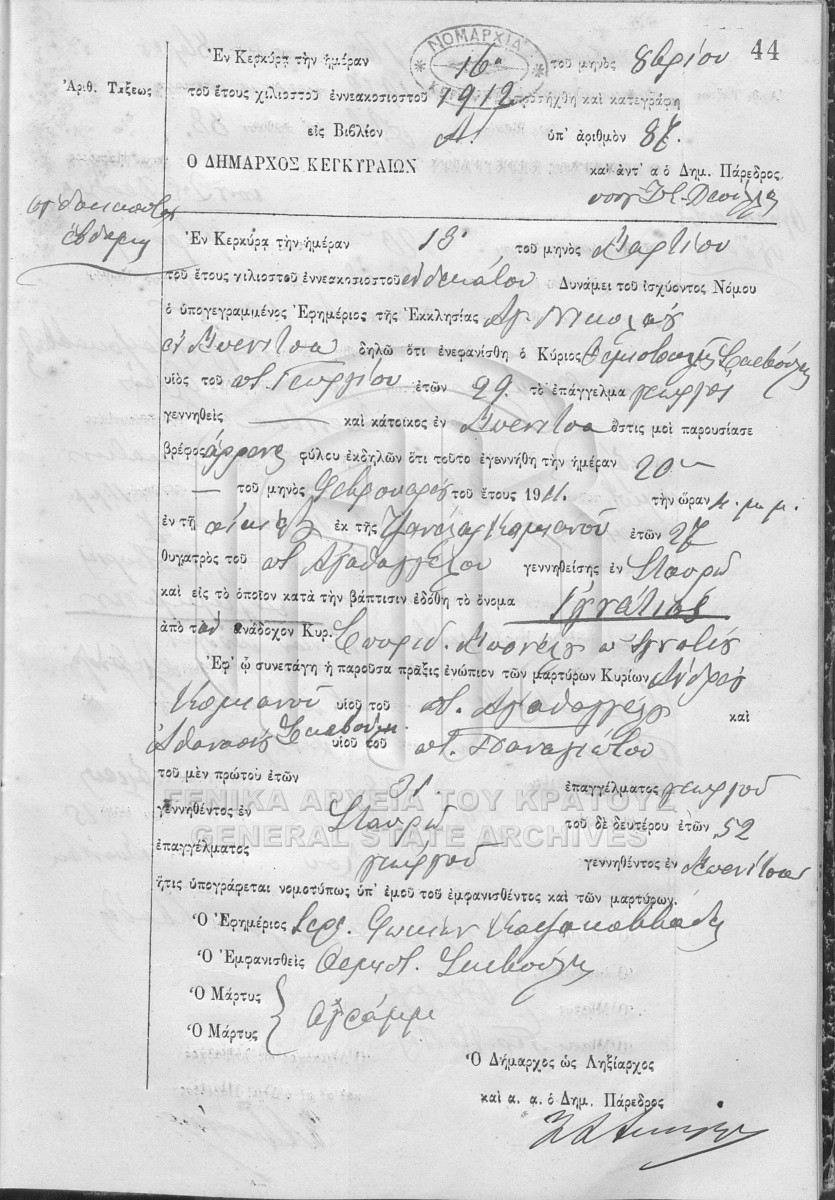 44
ΝΟΜΑΡΧΙΑ
Ἐν Κερκύρᾳ τὴν ἡμέραν 16η τοῦ μηνὸς 8βρίου
Ἀριθ. Τάξεως
τοῦ ἔτους χιλιοστοῦ ἐννεακοσιοστοῦ 1912 προσήχθη καὶ κατεγράφη
εἰς Βιβλίον Α. ὑπ' ἀριθμὸν 87.
Ὁ ΔΗΜΑΡΧΟΣ ΚΕΡΚΥΡΑΙΩΝ κατ' ἀντ' α ὁ Δημ. Πάρεδρος
ὀγδοηκοστὸς
ἕβδομη
Ἐν Κερκύρᾳ τὴν ἡμέραν 13 τοῦ μηνὸς Μαρτίου
τοῦ ἔτους χιλιοστοῦ ἐννεακοσιοστοῦ ἑνδεκάτου Δυνάμει τοῦ ἰσχύοντος Νόμου
ὁ ὑπογεγραμμένος Ἐφημέριος τῆς Ἐκκλησίας Ἁγ. Νικολάου
ἐν Μπενίτσα δηλῶ ὅτι ἐνεφανίσθη ὁ Κύριος Θεμιστοκλῆς Σκεβούλης
υἱὸς τοῦ ποτ. Γεωργίου ἐτῶν 29. τὸ ἐπάγγελμα γεωργὸς
γεννηθεὶς — καὶ κάτοικος ἐν Μπενίτσα ὅστις μοὶ παρουσίασε
βρέφος ἄρρενος φύλου ἐκδηλῶν ὅτι τοῦτο ἐγεννήθη τὴν ἡμέραν 20
— τοῦ μηνὸς Φεβρουαρίου τοῦ ἔτους 1911. τὴν ὥραν 4. μ. μ.
ἐν τῇ οἰκίᾳ ἐκ τῆς Κομιανοῦ ἐτῶν 27
θυγατρὸς τοῦ ποτ. Ἀγαθαγγέλου γεννηθείσης ἐν Σταυρῷ
καὶ εἰς τὸ ὁποῖον κατὰ τὴν βάπτισιν ἐδόθη τὸ ὄνομα Ἰγνάτιος
ἀπὸ τὸν ἀνάδοχον Κυρ. Σπυρίδ. Ἰγνατίου
Ἐφ' ᾧ συνετάγη ἡ παροῦσα πρᾶξις ἐνώπιον τῶν μαρτύρων Κυρίων Ἀνδρέου
Κομιανοῦ υἱοῦ τοῦ ποτ. Ἀγαθαγγέλου καὶ
Ἀθανασίου Σκεβούλη υἱοῦ τοῦ ποτ. Παναγιώτου
τοῦ μὲν πρώτου ἐτῶν 31. ἐπαγγέλματος γεωργοῦ
γεννηθέντος ἐν Σταυρῷ τοῦ δὲ δευτέρου ἐτῶν 52
ἐπαγγέλματος γεωργοῦ γεννηθέντος ἐν Μπενίτσα
ἥτις ὑπογράφεται νομοτύπως ὑπ' ἐμοῦ τοῦ ἐμφανισθέντος καὶ τῶν μαρτύρων.
Ὁ Ἐφημέριος Ἱερ.
Ὁ Ἐμφανισθεὶς Θεμιστ. Σκεβούλης
Ὁ Μάρτυς
Ὁ Μάρτυς
ἀγράμμ
Ὁ Δήμαρχος ὡς Ληξίαρχος
καὶ α. α. ὁ Δημ. Πάρεδρος
ΓΕΝΙΚΑ ΑΡΧΕΙΑ ΤΟΥ ΚΡΑΤΟΥΣ
GENERAL STATE ARCHIVES